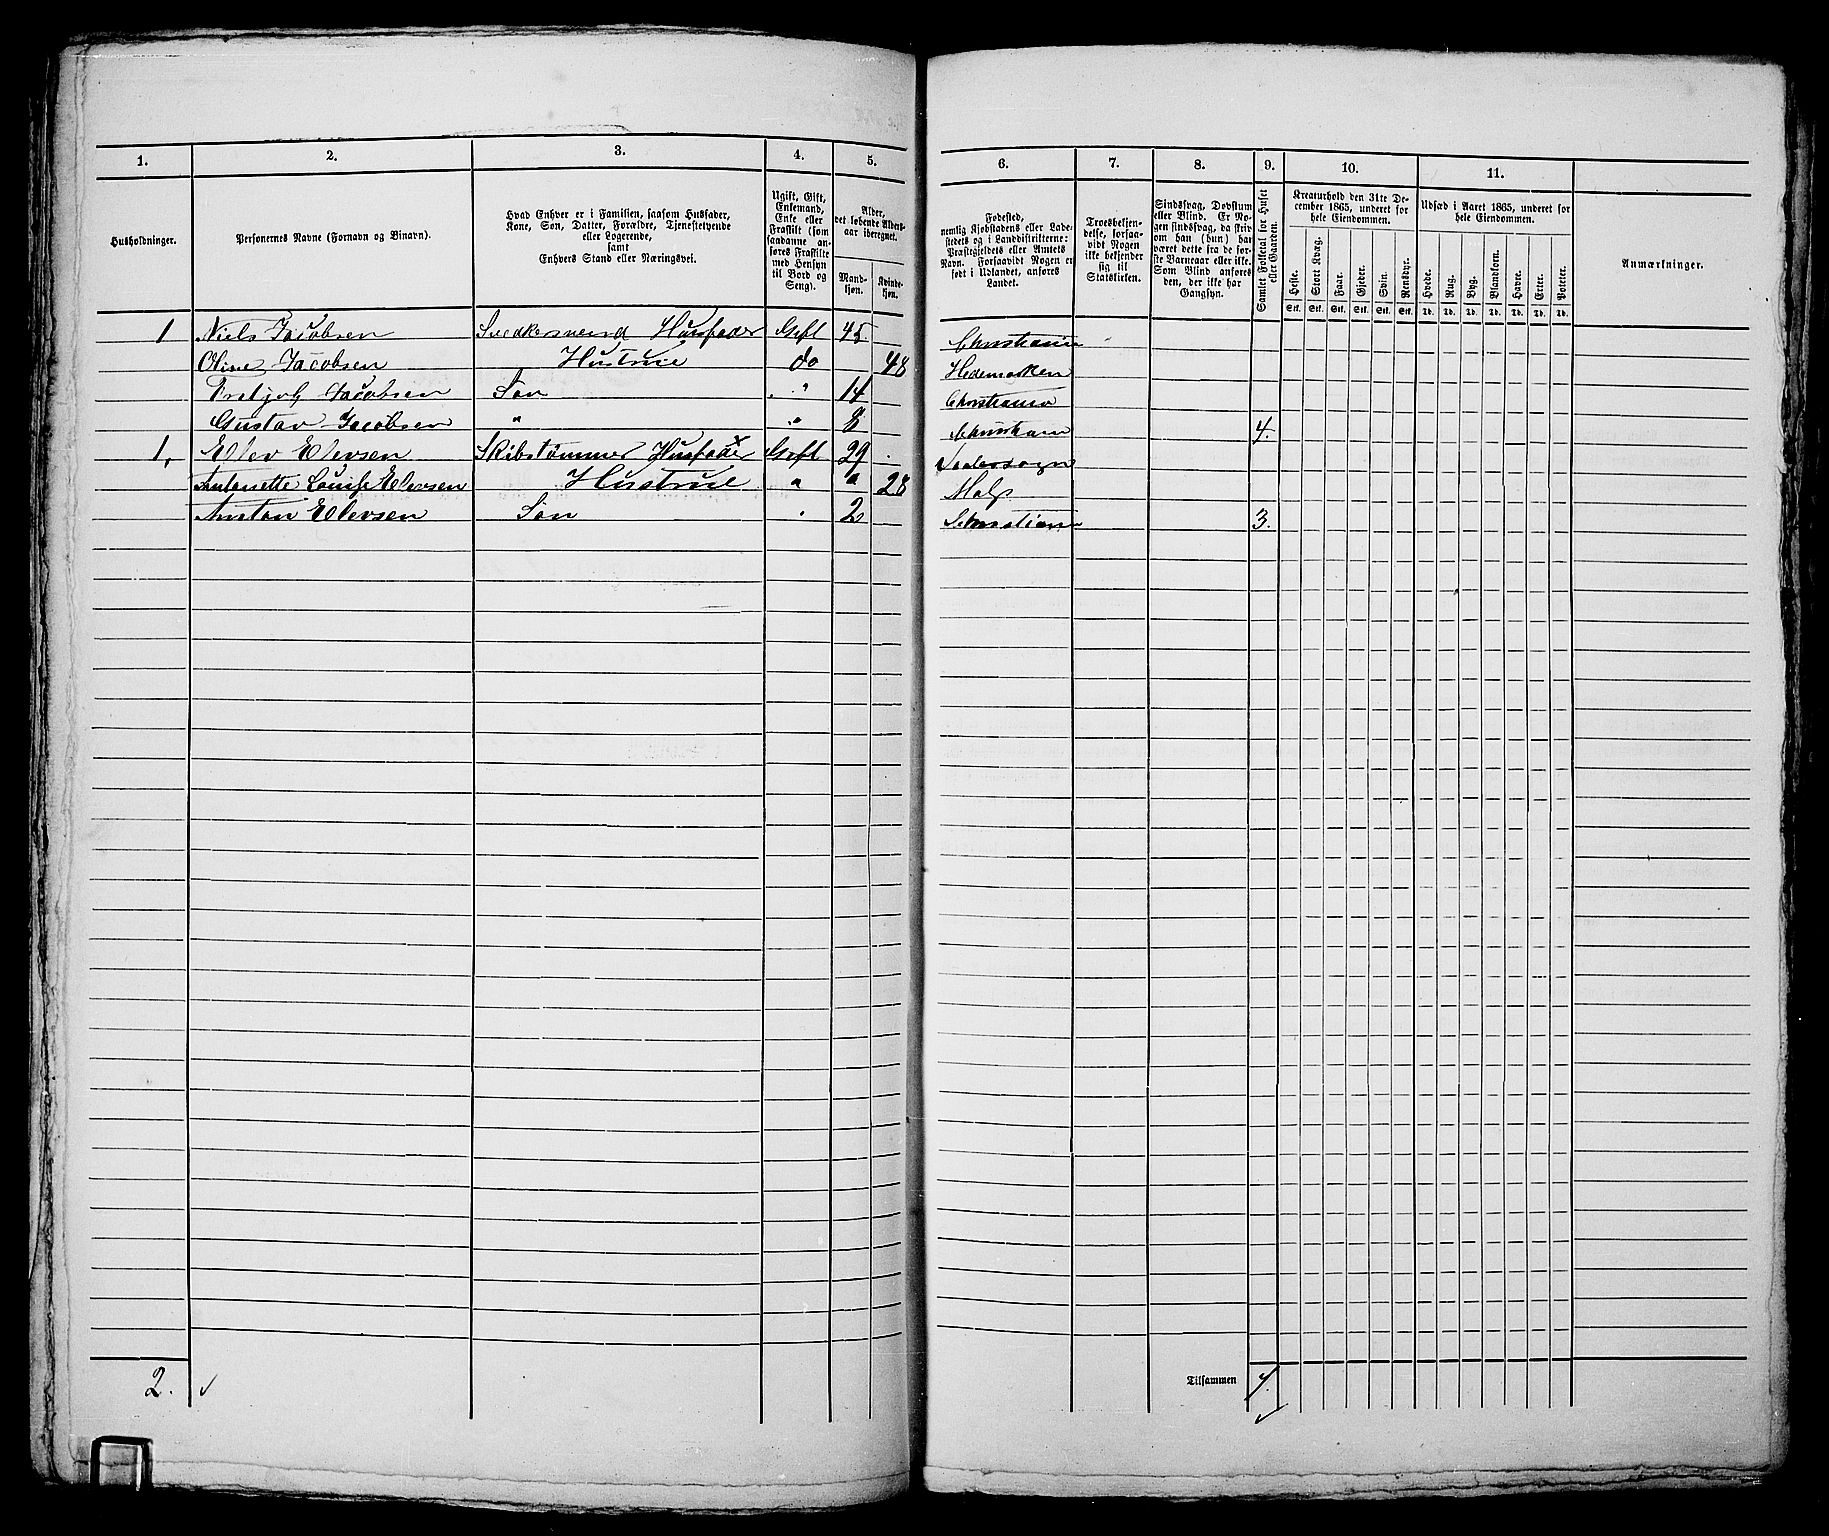 1. 2. 3. 4. 5. 6. 7. 8. 9. 10. 11.
Husholdninger.
Personernes Navne (Fornavn og Binavn).
Hvad Enhver er i Familien, saasom Husfader,
Kone, Søn, Datter, Forældre, Tjenestetyende
eller Logerende,
samt
Enhvers Stand eller Næringsvei.
Ugift, Gift,
Enkemand,
Enke eller
Fraskilt (som
saadanne an-
føres Fraskilte
med Hensyn
til Bord og
Seng).
Alder,
det løbende Alders-
aar iberegnet.
Mand-
kjøn.
Kvinde-
kjøn.
Fødested,
nemlig Kjøbstadens eller Lade-
stedets og i Landdistrikterne:
Præstegjeldets eller Amtets
Navn. Forsaavidt Nogen er
født i Udlandet, anføres
Landet.
Troesbekjen-
delse, forsaa-
vidt Nogen
ikke bekjender
sig til
Statskirken.
Sindssvag, Døvstum
eller Blind. Er No-
gen sindssvag, da skriv
om han (hun) har
været dette fra de før-
ste Barneaar eller ikke.
Som Blind anføres
den, der ikke har
Gangsyn.
Samlet Folketal for Huset
eller Gaarden.
Kreaturhold den 31te De-
cember 1865, underet for
hele Eiendommen.
Heste. Stort Kvæg. Faar. Gjeder. Svin. Rensdyr.
Stk. Stk. Stk. Stk. Stk. Stk.
Udsæd i Aaret 1865, underet for
hele Eiendommen.
Hvede. Rug. Byg. Blandkorn. Havre. Erter. Poteter.
Td. Td. Td. Td. Td. Td. Td.
Anmærkninger.
1 Niels Jacobsen Snedkersvend Husfader Gift 45. Christiania
Oline Jacobsen Hustrue do 48 Hedemarken
Jacobsen Søn " 14 Christiania
Gustav Jacobsen " " 8 4.
1. Elev Elevsen Skibstømmer Husfader Gift 29
Antonette Louise Elevsen Hustrue " " 28
Elevsen Søn 2 3.
2.
Tilsammen 7.